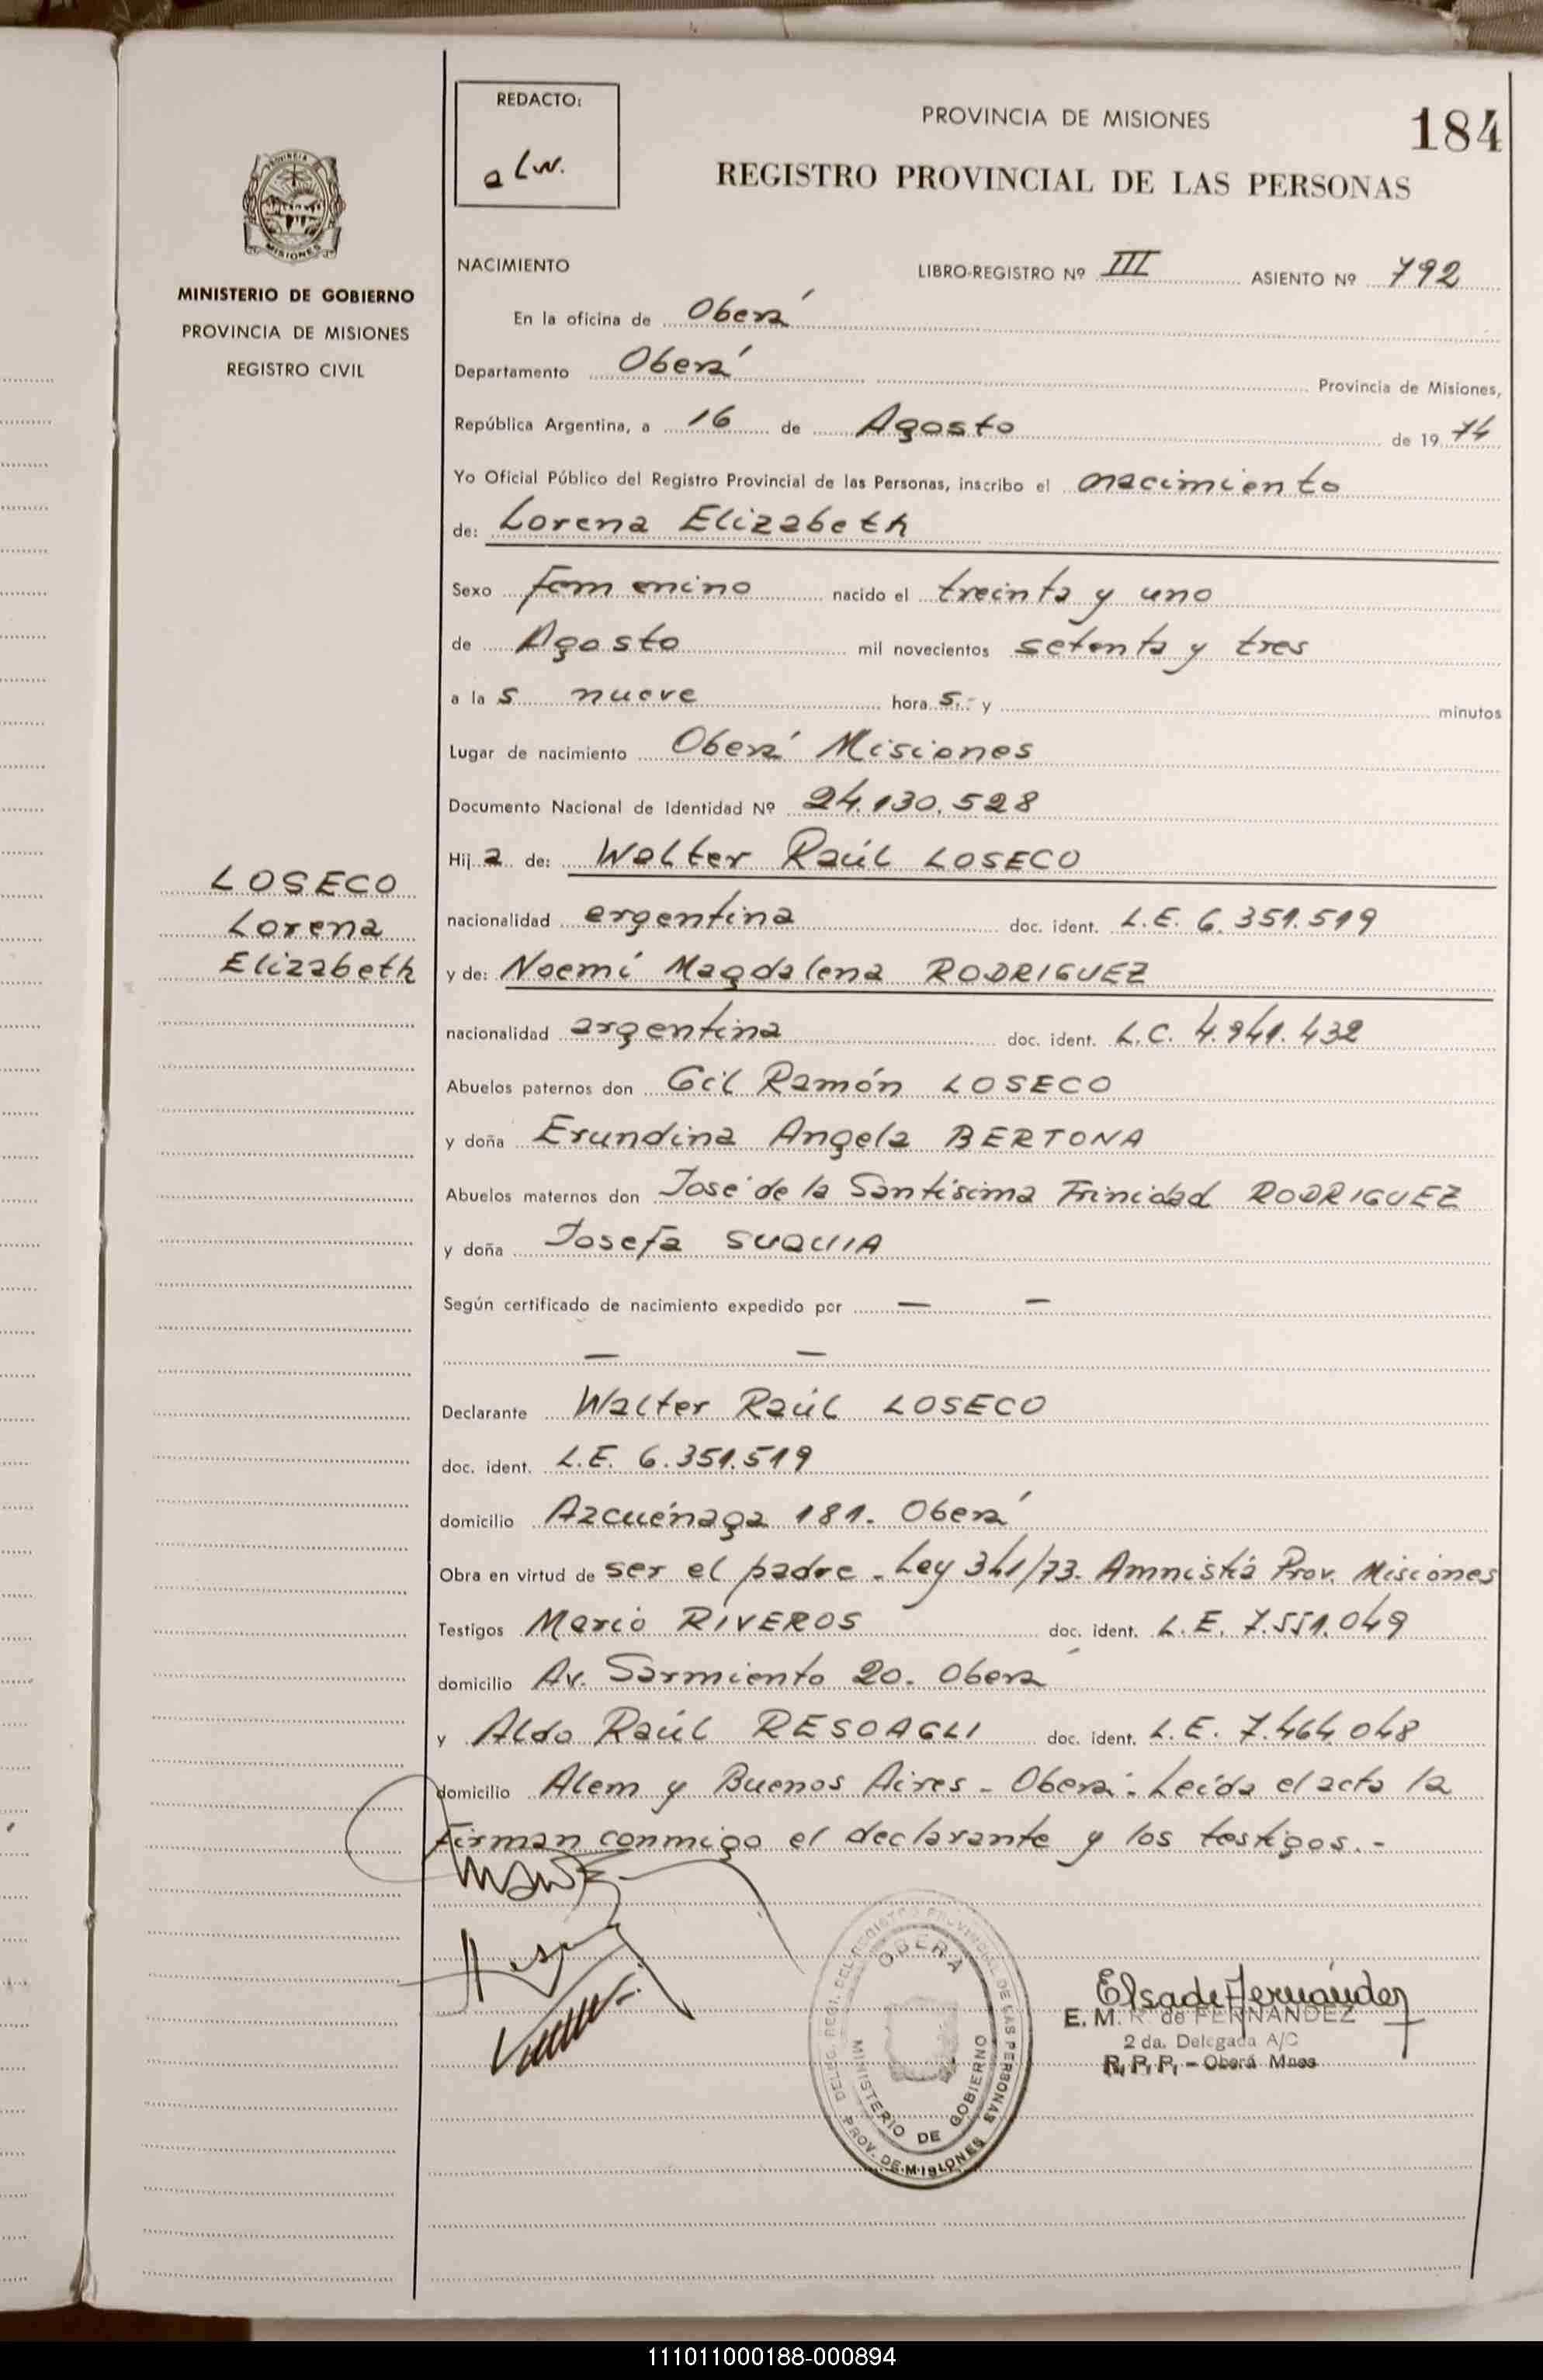 REDACTO:
PROVINCIA DE MISIONES
184
REGISTRO PROVINCIAL DE LAS PERSONAS
MISIONES
MINISTERIO DE GOBIERNO
PROVINCIA DE MISIONES
REGISTRO CIVIL
NACIMIENTO LIBRO-REGISTRO Nº III ASIENTO Nº 792
En la oficina de Oberá
Departamento Oberá Provincia de Misiones,
República Argentina, a 16 de Agosto de 1974
Yo Oficial Público del Registro Provincial de las Personas, inscribo el nacimiento
de: Lorena Elizabeth
Sexo femenino nacido el treinta y uno
de Agosto mil novecientos setenta y tres
a la s nueve hora s.- y minutos
Lugar de nacimiento Oberá Misiones
Documento Nacional de Identidad Nº 24.130.528
Hij a de: Walter Raúl LOSECO
LOSECO
Lorena
Elizabeth
nacionalidad argentina doc. ident. L.E. 6.351.519
y de: Noemí Magdalena RODRIGUEZ
nacionalidad argentina doc. ident. L.C. 4.941.432
Abuelos paternos don Gil Ramón LOSECO
y doña Erundina Angela BERTONA
Abuelos maternos don José de la Santísima Trinidad RODRIGUEZ
y doña Josefa SUQUIA
Según certificado de nacimiento expedido por — —
— —
Declarante Walter Raúl LOSECO
doc. ident. L.E. 6.351.519
domicilio Azcuénaga 181. Oberá
Obra en virtud de ser el padre - Ley 341/73. Amnistía Prov. Misiones
Testigos Mario RIVEROS doc. ident. L.E. 7.551.049
domicilio Av. Sarmiento 20. Oberá
y Aldo Raúl RESOAGLI doc. ident. L.E. 7.464.048
domicilio Alem y Buenos Aires - Oberá. Leída el acta la
Firman conmigo el declarante y los testigos.-
OBERA
MINISTERIO DE GOBIERNO
PROV. DE MISIONES
Elsa de Fernández
E. M. R. de FERNANDEZ
2 da. Delegada A/C
R. P. P. - Oberá Mnes
111011000188-000894